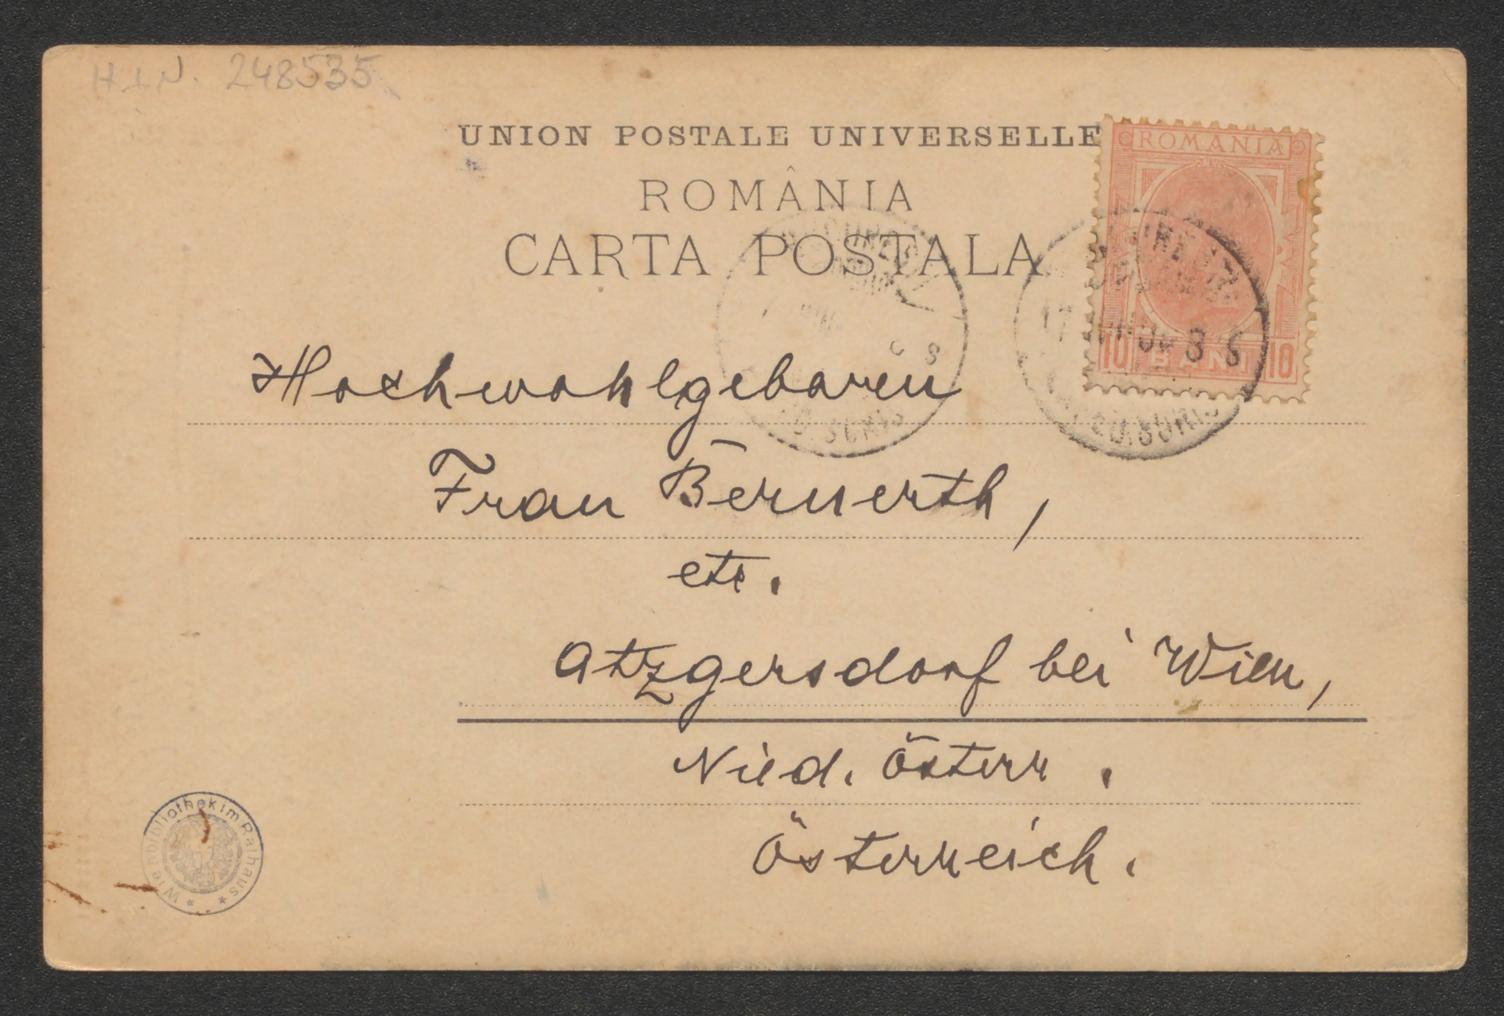 H.I.N. 248535
UNION POSTALE UNIVERSELLE
ROMÂNIA
CARTA POSTALA
ROMANIA
10 BANI 10
17 8 S
Hochwohlgeboren
Frau Bernerth,
etc.
Atzgersdorf bei Wien,
Nied. Österr.
Österreich.
Wienbibliothek im Rathaus